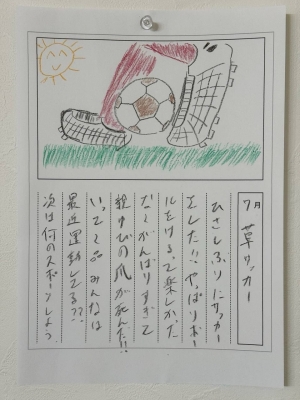 7月 草サッカー
ひさしぶりにサッカー
をした!! やっぱりボー
ルをける、て楽しかった
だくがんばりすぎて
親ゆびの爪が死んだ!!
いって〜 みんなは
最近運動してる??
次は何のスポーツしよう